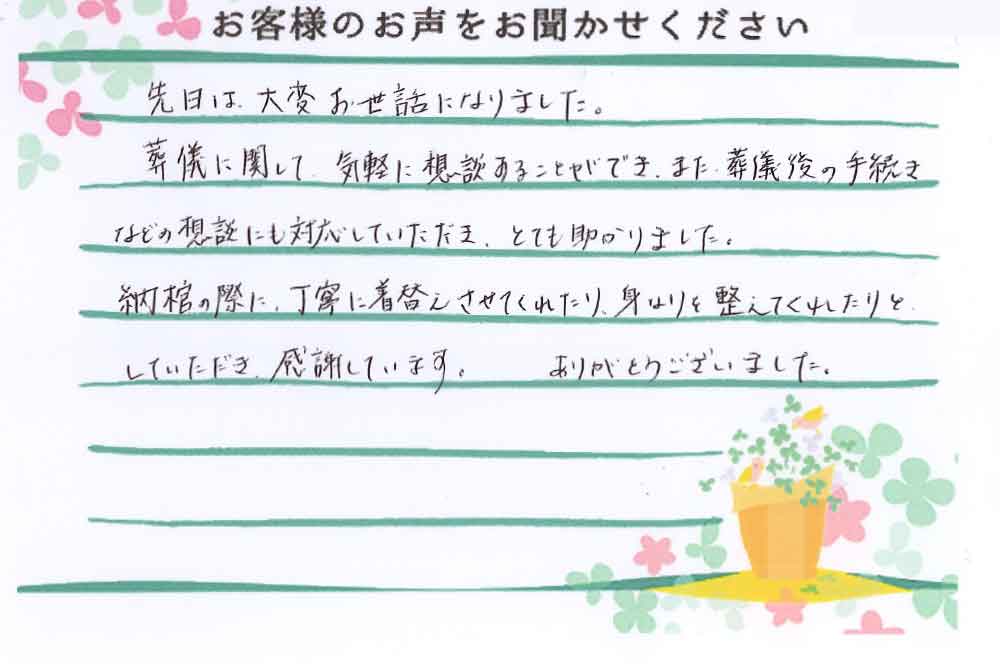 お客様のお声をお聞かせください
先日は、大変お世話になりました。
葬儀に関して、気軽に想談することができ、また、葬儀後の手続き
などの想談にも対応していただき、とても助かりました。
納棺の際に、丁寧に着替えさせてくれたり、身なりを整えてくれたりと、
していただき、感謝しています。　ありがとうございました。